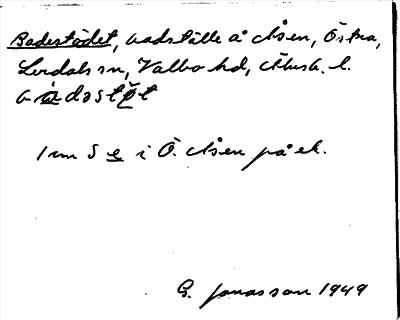 Badestödet, vadställe å Åsen, Östra,
Lerdals sn, Valbo hd, Älvsb. l.
1 km S e i Ö. Åsen på ek.
G. Jonasson 1949